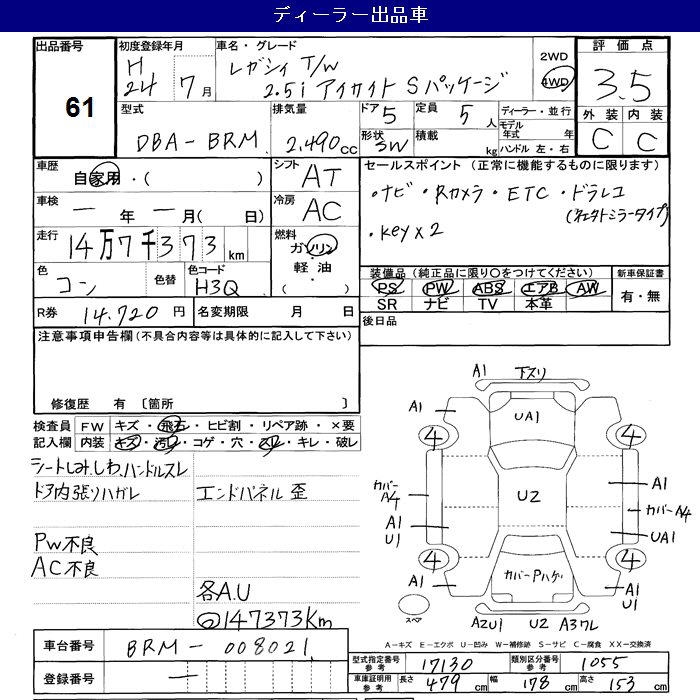 ディーラー出品車
出品番号 61
初度登録年月 H 24 7月
車名・グレード レガシィ T/W 2.5i アイサイト Sパッケージ
2WD
4WD
評価点 3.5
外装 内装
C C
型式 DBA-BRM
排気量 2.490cc
ドア 5
形状 3W
定員 5人
積載 kg
ディーラー・並行
モデル年式 年
ハンドル 左・右
車歴 自家用・( )
シフト AT
車検 一年一月( 日)
冷房 AC
走行 14万7千373km
燃料 ガソリン・軽油・( )
色 コン
色替
色コード H3Q
R券 14.720円
名変期限 月 日
セールスポイント (正常に機能するものに限ります)
・ナビ・Rカメラ・ETC・ドラレコ
・Key×2
装備品(純正品に限り○をつけてください)
PS PW ABS エアB AW
SR ナビ TV 本革
新車保証書
有・無
後日品
注意事項申告欄(不具合内容等は具体的に記入して下さい)
修復歴 有 〔箇所 〕
検査員記入欄
FW キズ・飛石・ヒビ割・リペア跡・×要
内装 キズ・汚れ・コゲ・穴・スレ・キレ・破レ
シートしみ.しわ.ハンドルスレ
ドア内張りハガレ
エンドパネル歪
PW不良
AC不良
各A.U
147373Km
A1 下スリ
A1 UA1 A1
4 4
カバーA4 U2 A1
カバーA4
A1
U1
UA1
4 4
A1 カバーPハゲ A1
U1
スペア
A2U1 U2 A3ワレ
A-キズ E-エクボ U-凹み W-補修跡 S-サビ C-腐食 XX-交換済
車台番号 BRM-008021
登録番号 一
型式指定番号参考 17130
類別区分番号参考 1055
車庫証明用参考 長さ 479cm 幅 178cm 高さ 153cm